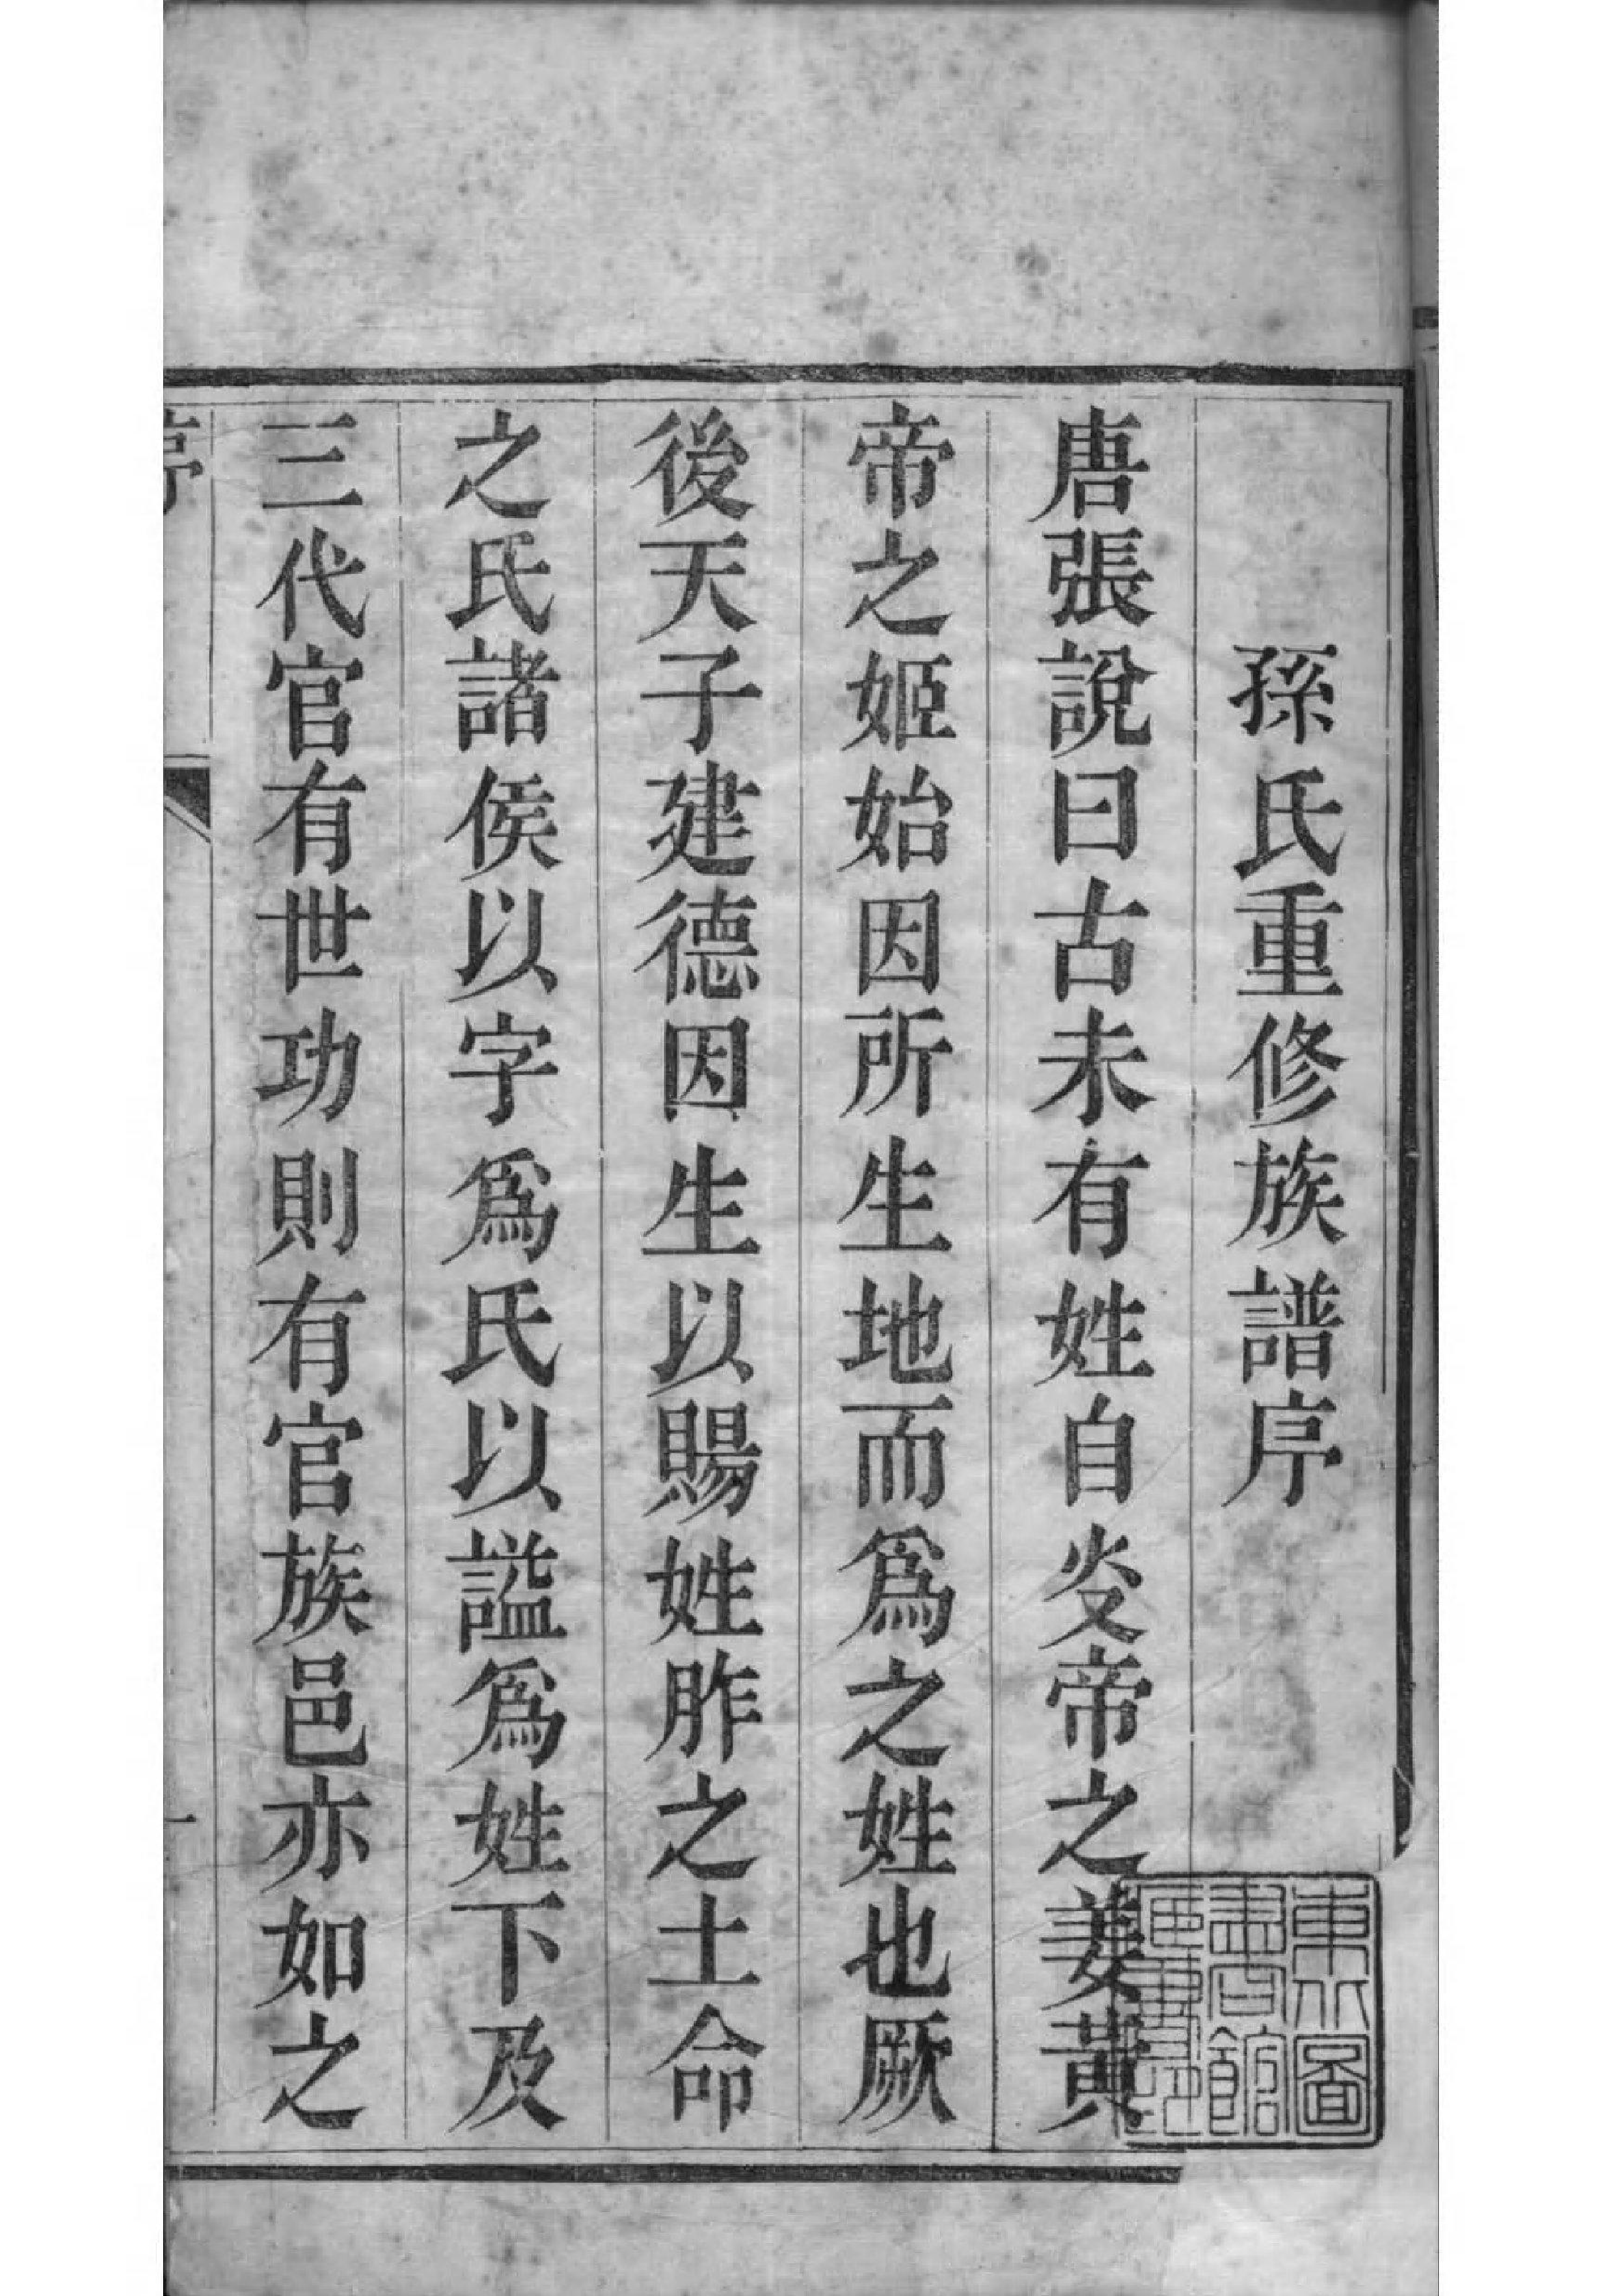 孫氏重修族譜序
唐張說曰古未有姓自炎帝之姜黃
帝之姬始因所生地而爲之姓也厥
後天子建德因生以賜姓胙之土命
之氏諸侯以字爲氏以謚爲姓下及
三代官有世功則有官族邑亦如之
一